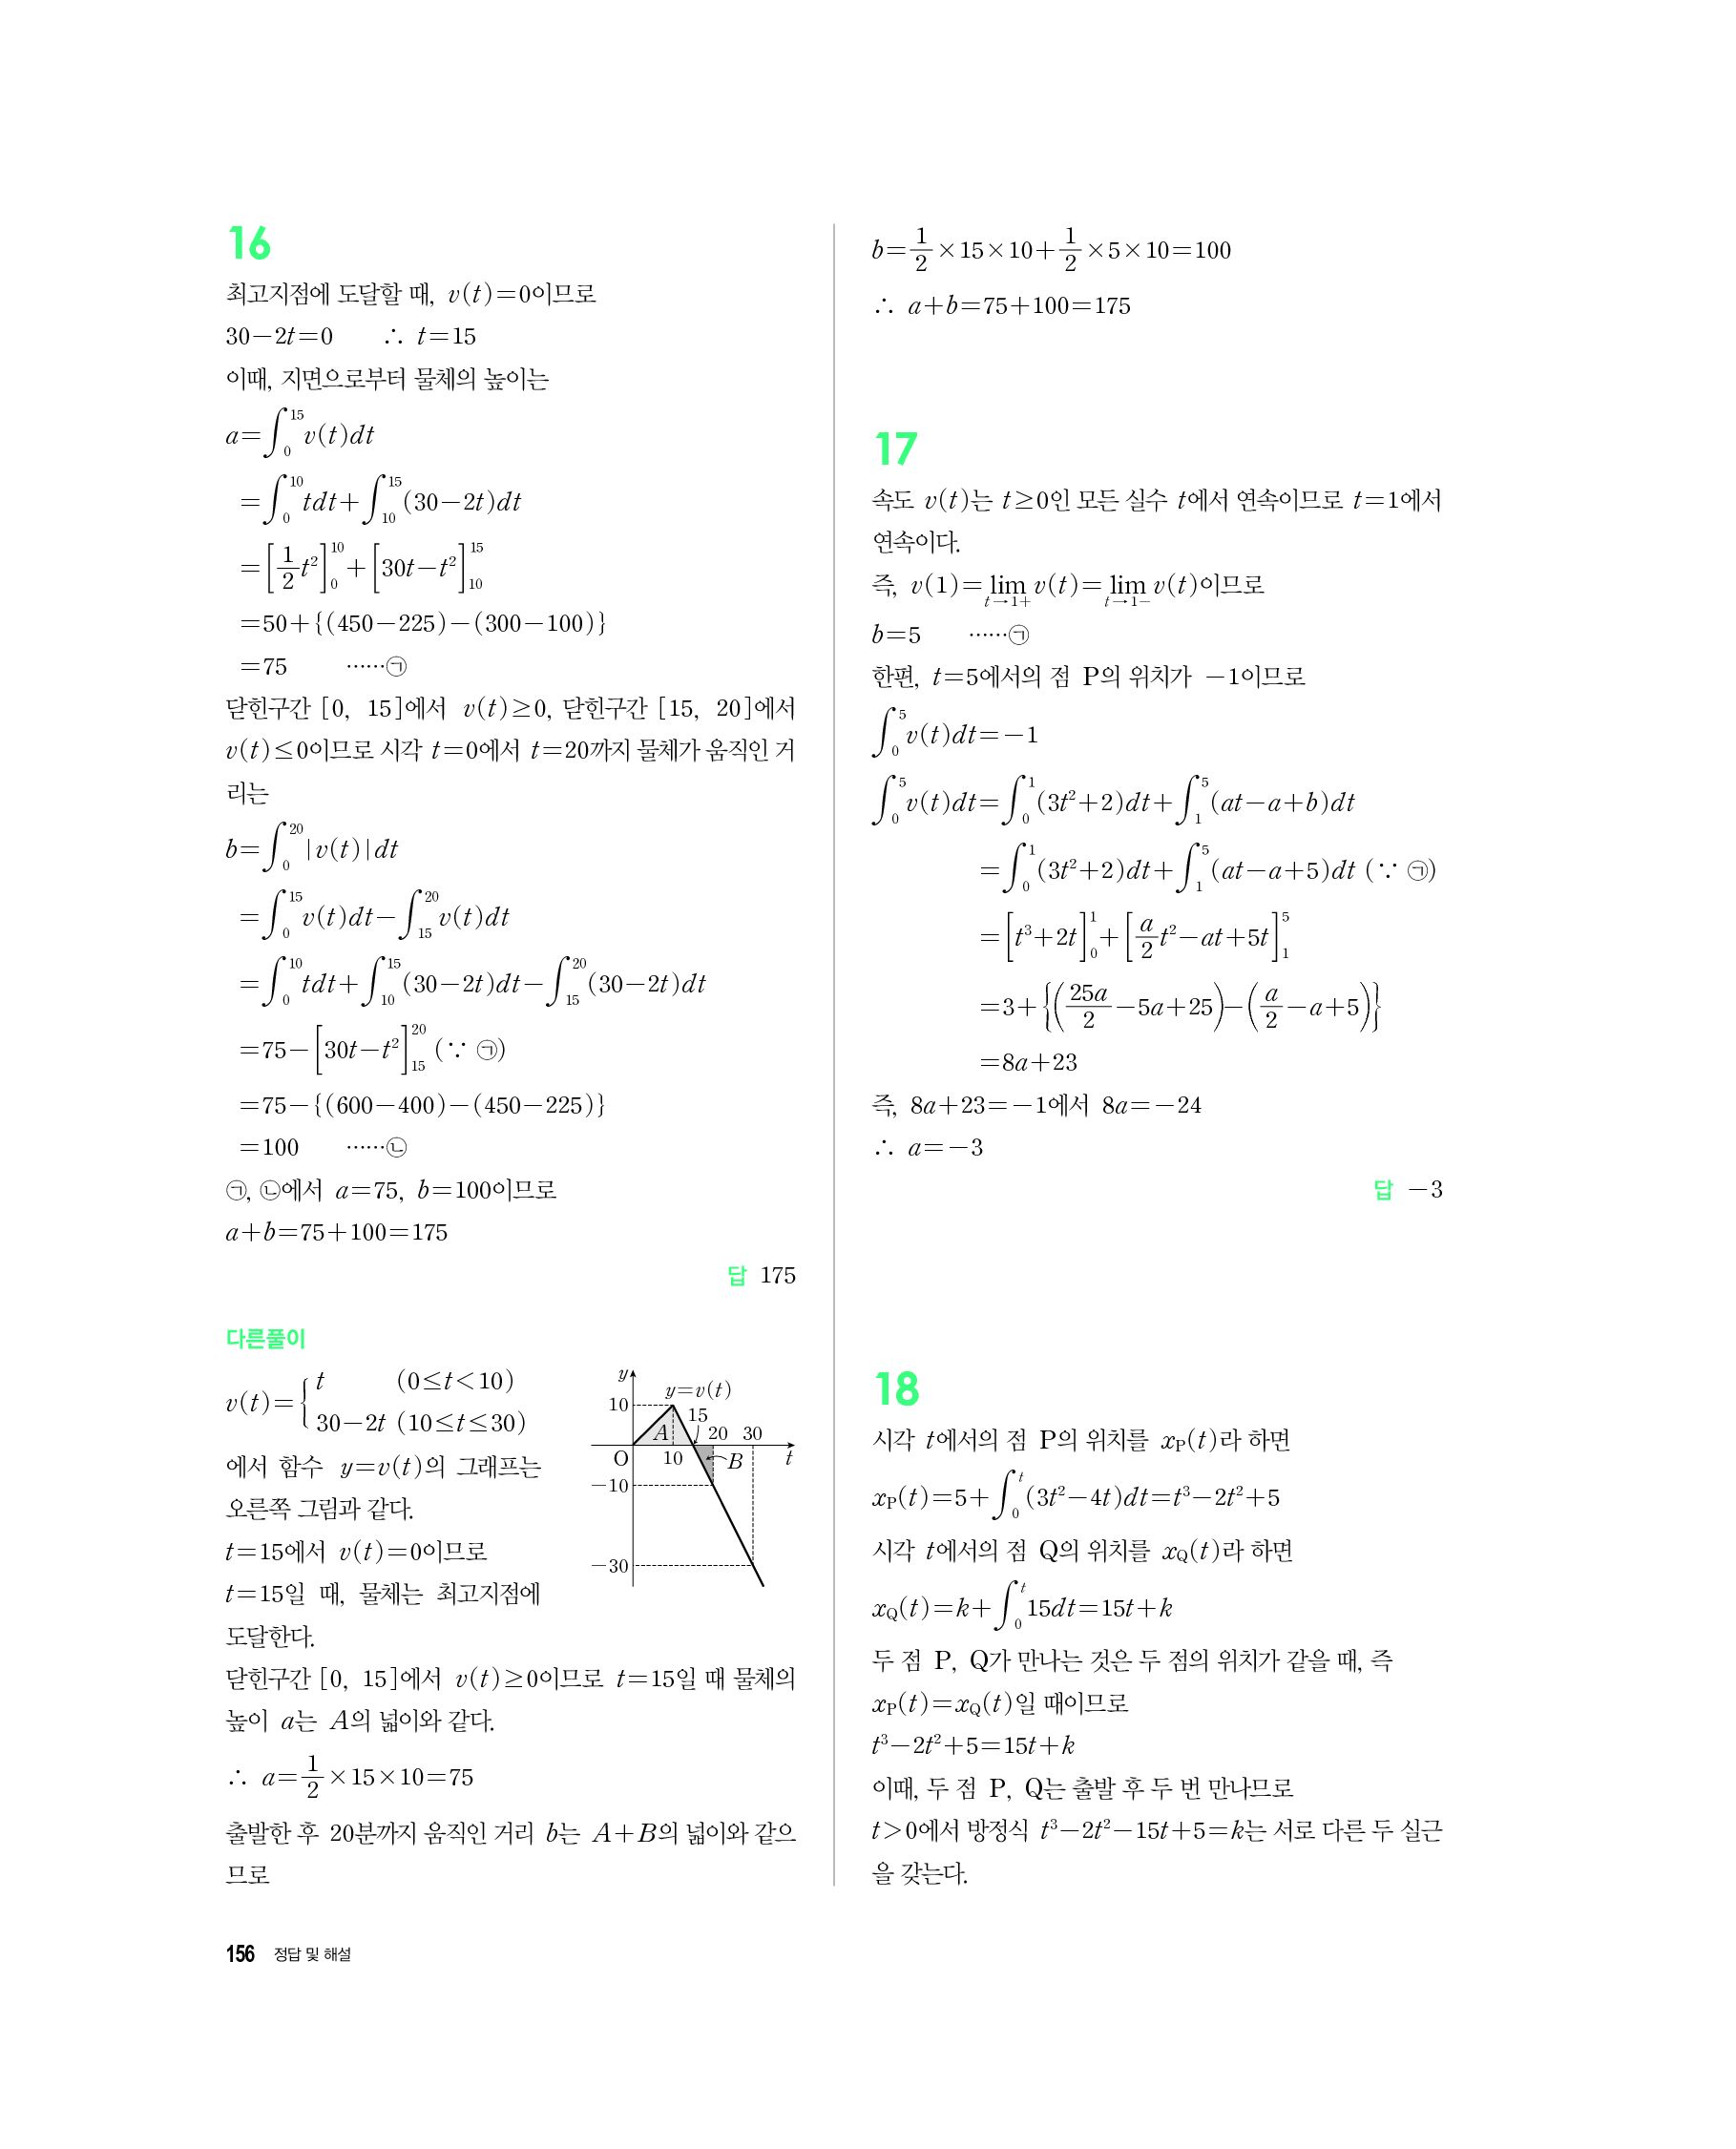 16
최고지점에 도달할 때, v(t)=0이므로
30-2t=0 ∴ t=15
이때, 지면으로부터 물체의 높이는
a=∫_0^15 v(t)dt
=∫_0^10 tdt+∫_10^15 (30-2t)dt
=[1/2 t²]_0^10+[30t-t²]_10^15
=50+{(450-225)-(300-100)}
=75 ……㉠
닫힌구간 [0, 15]에서 v(t)≥0, 닫힌구간 [15, 20]에서
v(t)≤0이므로 시각 t=0에서 t=20까지 물체가 움직인 거
리는
b=∫_0^20 |v(t)|dt
=∫_0^15 v(t)dt-∫_15^20 v(t)dt
=∫_0^10 tdt+∫_10^15 (30-2t)dt-∫_15^20 (30-2t)dt
=75-[30t-t²]_15^20 (∵ ㉠)
=75-{(600-400)-(450-225)}
=100 ……㉡
㉠, ㉡에서 a=75, b=100이므로
a+b=75+100=175
답 175
다른풀이
v(t)={ t (0≤t<10)
30-2t (10≤t≤30)
에서 함수 y=v(t)의 그래프는
오른쪽 그림과 같다.
t=15에서 v(t)=0이므로
t=15일 때, 물체는 최고지점에
도달한다.
y
y=v(t)
10
15
A
20 30
O 10 B t
-10
-30
닫힌구간 [0, 15]에서 v(t)≥0이므로 t=15일 때 물체의
높이 a는 A의 넓이와 같다.
∴ a=1/2×15×10=75
출발한 후 20분까지 움직인 거리 b는 A+B의 넓이와 같으
므로
b=1/2×15×10+1/2×5×10=100
∴ a+b=75+100=175
17
속도 v(t)는 t≥0인 모든 실수 t에서 연속이므로 t=1에서
연속이다.
즉, v(1)=lim_{t→1+} v(t)=lim_{t→1-} v(t)이므로
b=5 ……㉠
한편, t=5에서의 점 P의 위치가 -1이므로
∫_0^5 v(t)dt=-1
∫_0^5 v(t)dt=∫_0^1 (3t²+2)dt+∫_1^5 (at-a+b)dt
=∫_0^1 (3t²+2)dt+∫_1^5 (at-a+5)dt (∵ ㉠)
=[t³+2t]_0^1+[a/2 t²-at+5t]_1^5
=3+{(25a/2-5a+25)-(a/2-a+5)}
=8a+23
즉, 8a+23=-1에서 8a=-24
∴ a=-3
답 -3
18
시각 t에서의 점 P의 위치를 x_P(t)라 하면
x_P(t)=5+∫_0^t (3t²-4t)dt=t³-2t²+5
시각 t에서의 점 Q의 위치를 x_Q(t)라 하면
x_Q(t)=k+∫_0^t 15dt=15t+k
두 점 P, Q가 만나는 것은 두 점의 위치가 같을 때, 즉
x_P(t)=x_Q(t)일 때이므로
t³-2t²+5=15t+k
이때, 두 점 P, Q는 출발 후 두 번 만나므로
t>0에서 방정식 t³-2t²-15t+5=k는 서로 다른 두 실근
을 갖는다.
156 정답 및 해설